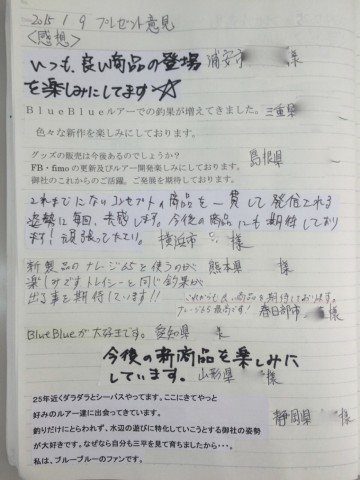 2015 1 9 プレゼント意見
<感想>
いつも、良い商品の登場 浦安市 様
を楽しみにしてます☆
BlueBlueルアーでの釣果が増えてきました。 三重県 様
色々な新作を楽しみにしております。
グッズの販売は今後あるのでしょうか?
FB・fimoの更新及びルアー開発楽しみにしております。 島根県 様
御社のこれからのご活躍、ご発展を期待しております。
これまでにないコンセプトの商品を一貫して発信される
姿勢に毎回、共感します。今後の商品にも期待しており
ます!頑張って下さい。 横浜市 様
新製品のナレージ65を使うのが 熊本県 様
楽しみですトレイシーと同じ釣果が
出る事を期待しています!!
これからも良い商品を期待しております。
ナレージ65最高です! 春日部市 様
BlueBlueが大好きです。 愛知県 様
今後の新商品を楽しみに
しています。 山形県 様
25年近くダラダラとシーバスやってます。ここにきてやっと
好みのルアー達に出会ってきています。
釣りだけにとらわれず、水辺の遊びに特化していこうとする御社の姿勢 静岡県 様
が大好きです。なぜなら自分も三平を見て育ちましたから・・・。
私は、ブルーブルーのファンです。